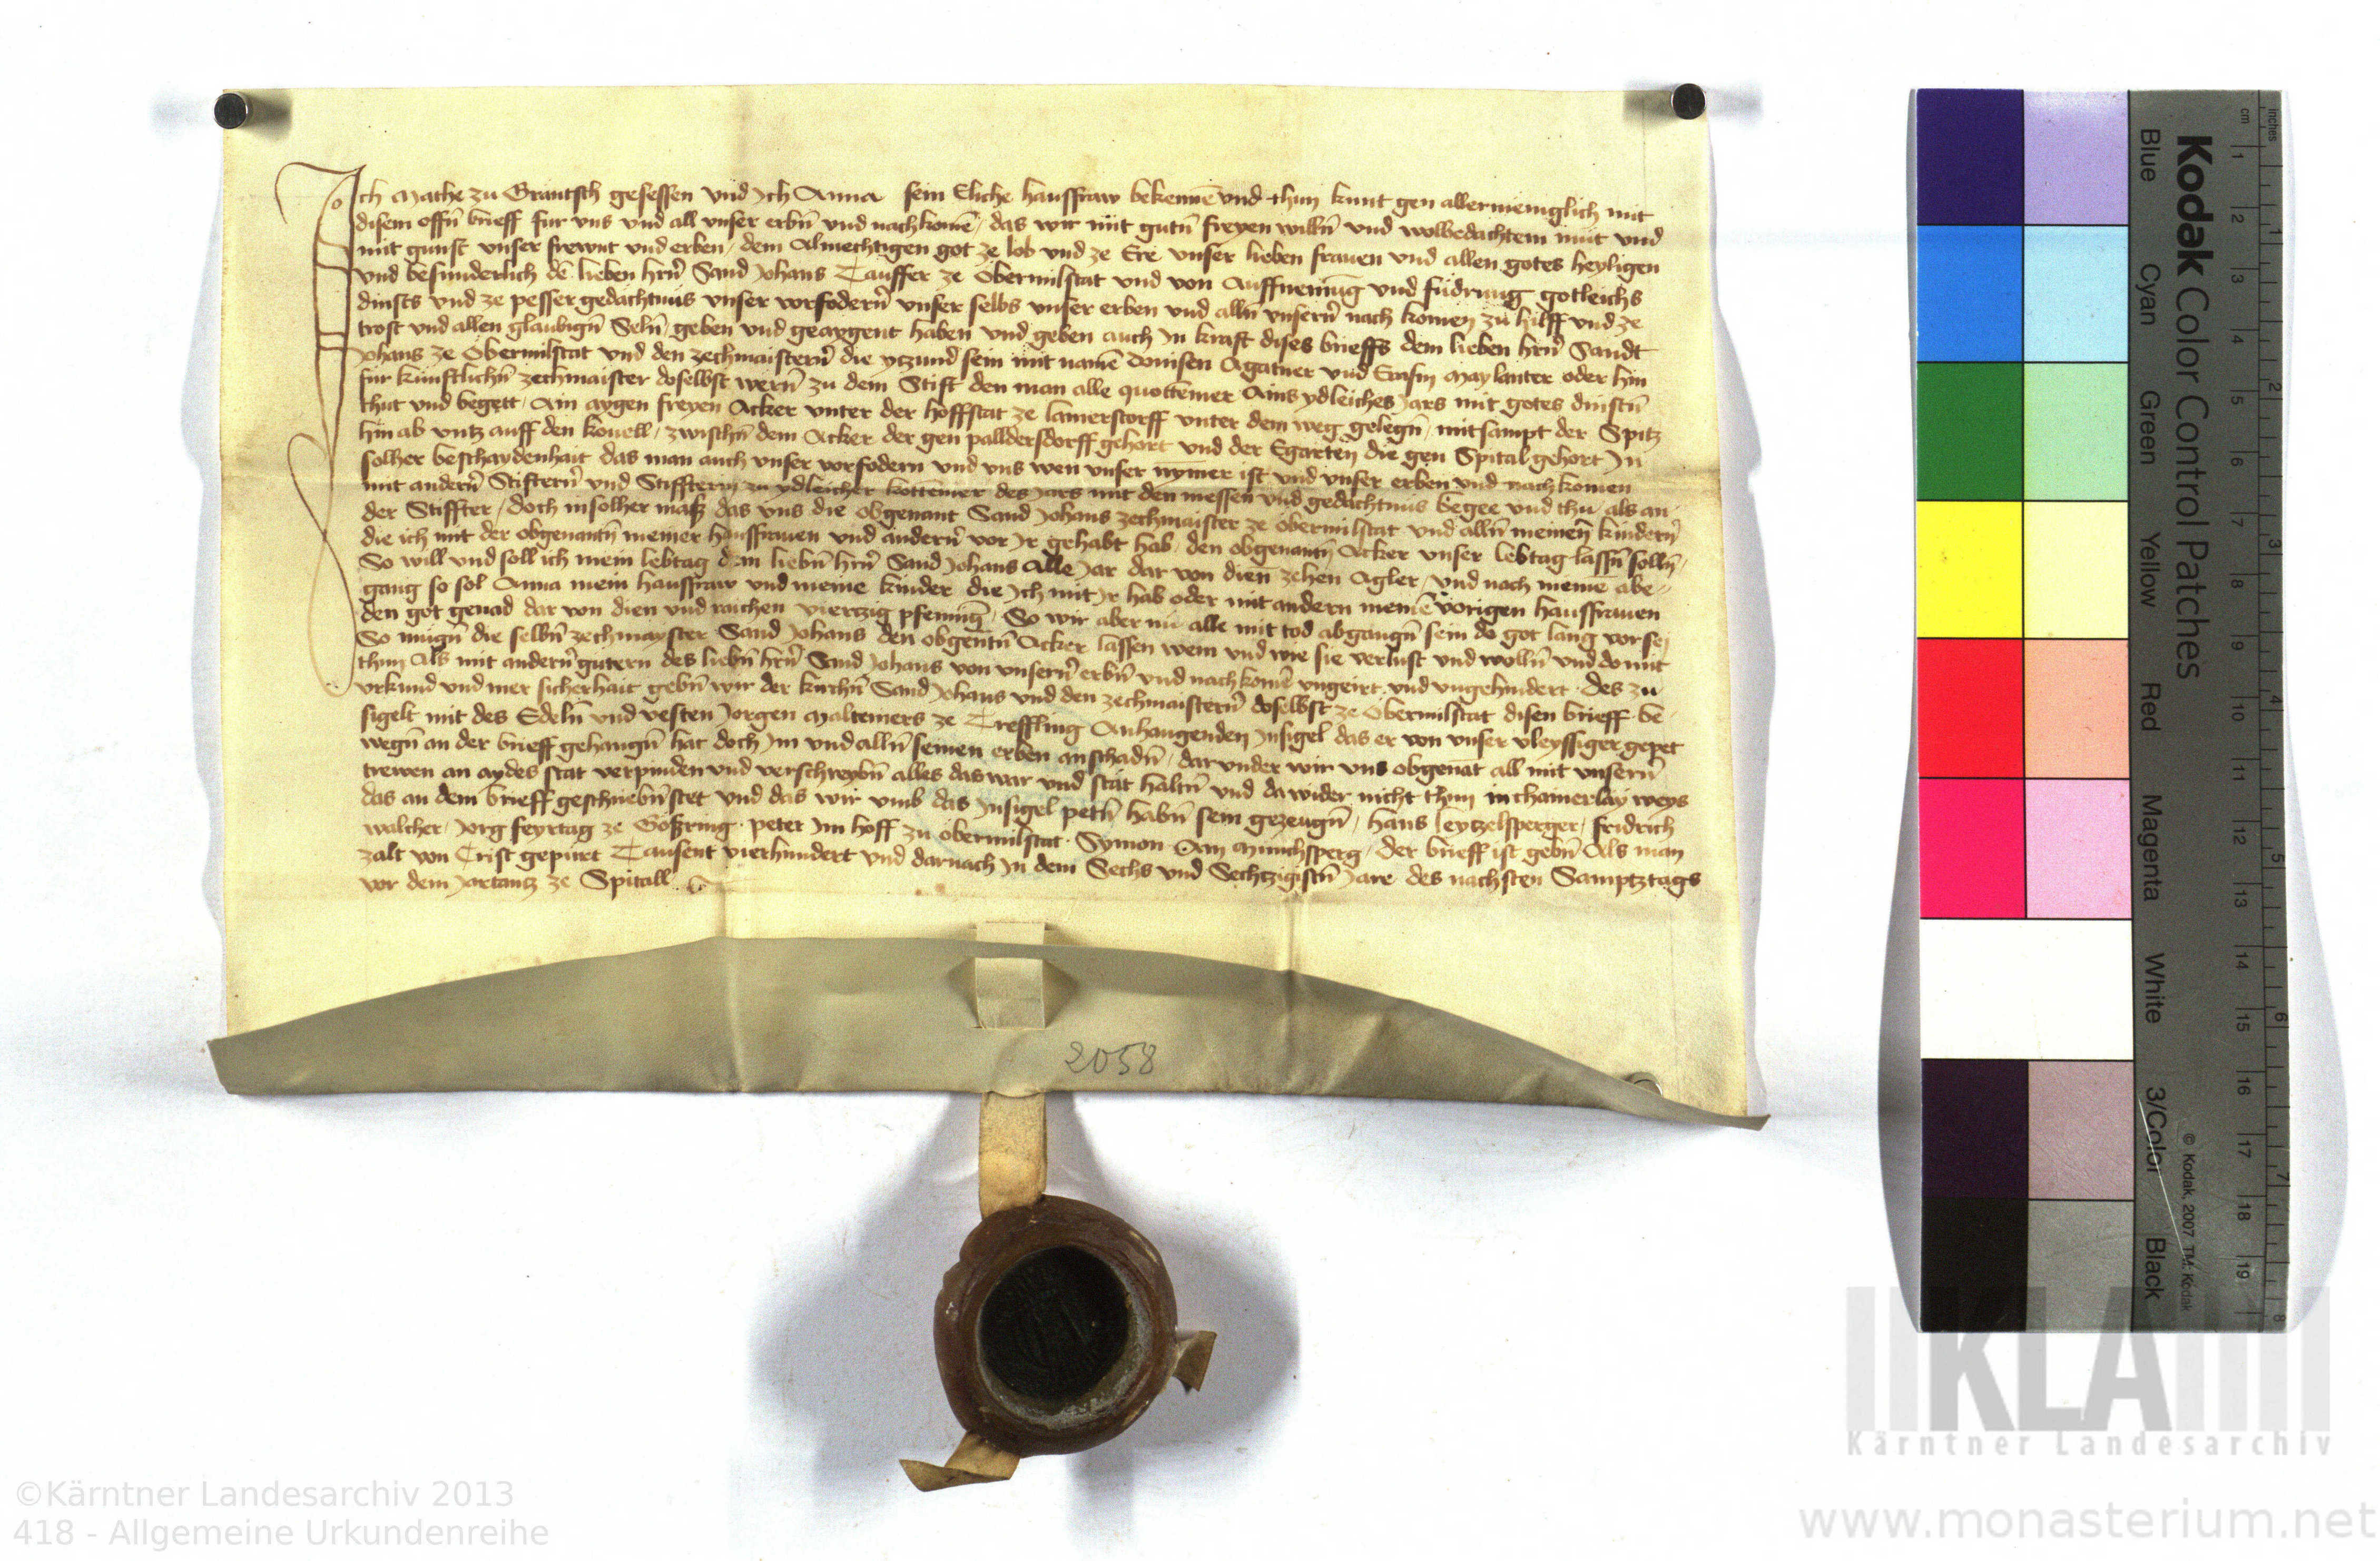 Ich Mathe zu Grantsch gesessen und Ich Anna sein Eliche hausfraw bekennē und thun kunt gen allermeniglich mit
disem offn̄ brieff fur uns und all unser erbn̄ und nachkomē / das wir mit gutn̄ freyen willn̄ und wolbedachtem mut und
mit gunst unser frewnt und erben / dem Almechtigen got ze lob und ze Ere unser lieben frauen und allen gotes heyligen
und besunderlich dē lieben hrn̄ Sand Johans Tauffer ze Obermilstat und von Auffnemūg und fudrung gotleichs
dinsts und ze pesser gedachtnus unser vorfodern̄ unser selbs unser erben und alln̄ unsern̄ nach komen zu hilff und ze
trost und allen glaubign̄ Seln̄ geben und geaygent haben und geben auch In kraft dises brieffs dem lieben hrn̄ Sandt
Johans ze Obermilstat und den zechmaistern̄ die yczund sein mit namē Donisen Agatner und Erasm Maylanter oder hin
fur kunftlichn̄ zechmaister doselbst wern̄ zu dem Stift den man alle quottemer Ains ydleiches Jars mit gotes dinstn̄
thut und begett / Ain aygen freyen Acker unter der hoffstat ze lamerstorff unter dem weg gelegn̄ / mitsampt der Spitz
hin ab untz auff den kouell / zwischn̄ dem Acker der gen palldersdorff gehort und der Egarten die gen Spital gehort In
solher beschaydenhait das man auch unser vorfodern und uns wen unser nymer ist und unser erben und nach komen
mit andern̄ Stiftern̄ und Stifftern zu ydleicher kottemer des Jars mit den messen und gedachtnus begee und thu als an-
der Stiffter / doch in solher mass das uns die obgenant Sand Johans zechmaister ze obermilstat und alln̄ meinen̄ kindern̄
die ich mit der obgenantn̄ meiner hausfrauen und andern̄ vor Jr gehabt hab / den obgenantn̄ Acker unser lebtag lassn̄ solln̄ /
So will und soll ich mein lebtag dem liebn̄ hrn̄ Sand Johans Alle Jar dar von dien zehen Agler / und nach meinē abe-
gang so sol Anna mein hausfraw und meine kinder die Ich mit Jr hab oder mit andern meinē vorigen hausfrauen
den got genad dar von dien und raichen vierczig pfenniḡ / So wir aber nu alle mit tod abgangn̄ sein do got lang vor sej
So mugn̄ die selbn̄ zechmayster Sand Johans den obgentn̄ Acker lassen wem und wie sie verlust und wolln̄ und do mit
thun Als mit andern̄ gutern des liebn̄ hrn̄ Sand Johans von unsern̄ erbn̄ und nach komē ungeirt und ungehindert · Des zu
urkund und mer sicherhait gebn̄ wir der kirchn̄ Sand Johans und den zechmaistern̄ doselbst ze Obermilstat disen brieff be-
sigelt mit des Edeln̄ und vesten Jorgen Maltemers ze Treffling Anhangenden Insigel das er von unser vleyssiger gepet
wegn̄ an der brieff gehangn̄ hat doch Im und alln̄ seinen erben an schadn̄ / dar under wir uns obgenāt all mit unsern̄
trewen an aydes stat verpinden und verschreybn̄ alles das war und stāt haltn̄ und da wider nicht thun in chainerlay weys
das an dem brieff geschriebn̄ stet und das wir umb das Insigel petn̄ habn̄ sein gezeugn̄ / hans leytzelsperger / fridrich
walcher / Jorg feyrtag ze Gossring · peter Im hoff zu obermilstat · Symon Am Munchsperg / der brieff ist gebn̄ Als man
zalt von Crist gepurt Tausent vierhundert und darnach In dem Sechs und Sechtzigistn̄ Jare des nachsten Samptztags
vor dem Jartantz ze Spitall
2058
Kodak Color Control Patches
Blue Cyan Green Yellow Red Magenta White 3/Color Black
© Kodak, 2007 TM: Kodak
cm 1 2 3 4 5 6 7 8 9 10 11 12 13 14 15 16 17 18 19
inches 1 2 3 4 5 6 7 8
KLA
Kärntner Landesarchiv
©Kärntner Landesarchiv 2013
418 - Allgemeine Urkundenreihe
www.monasterium.net